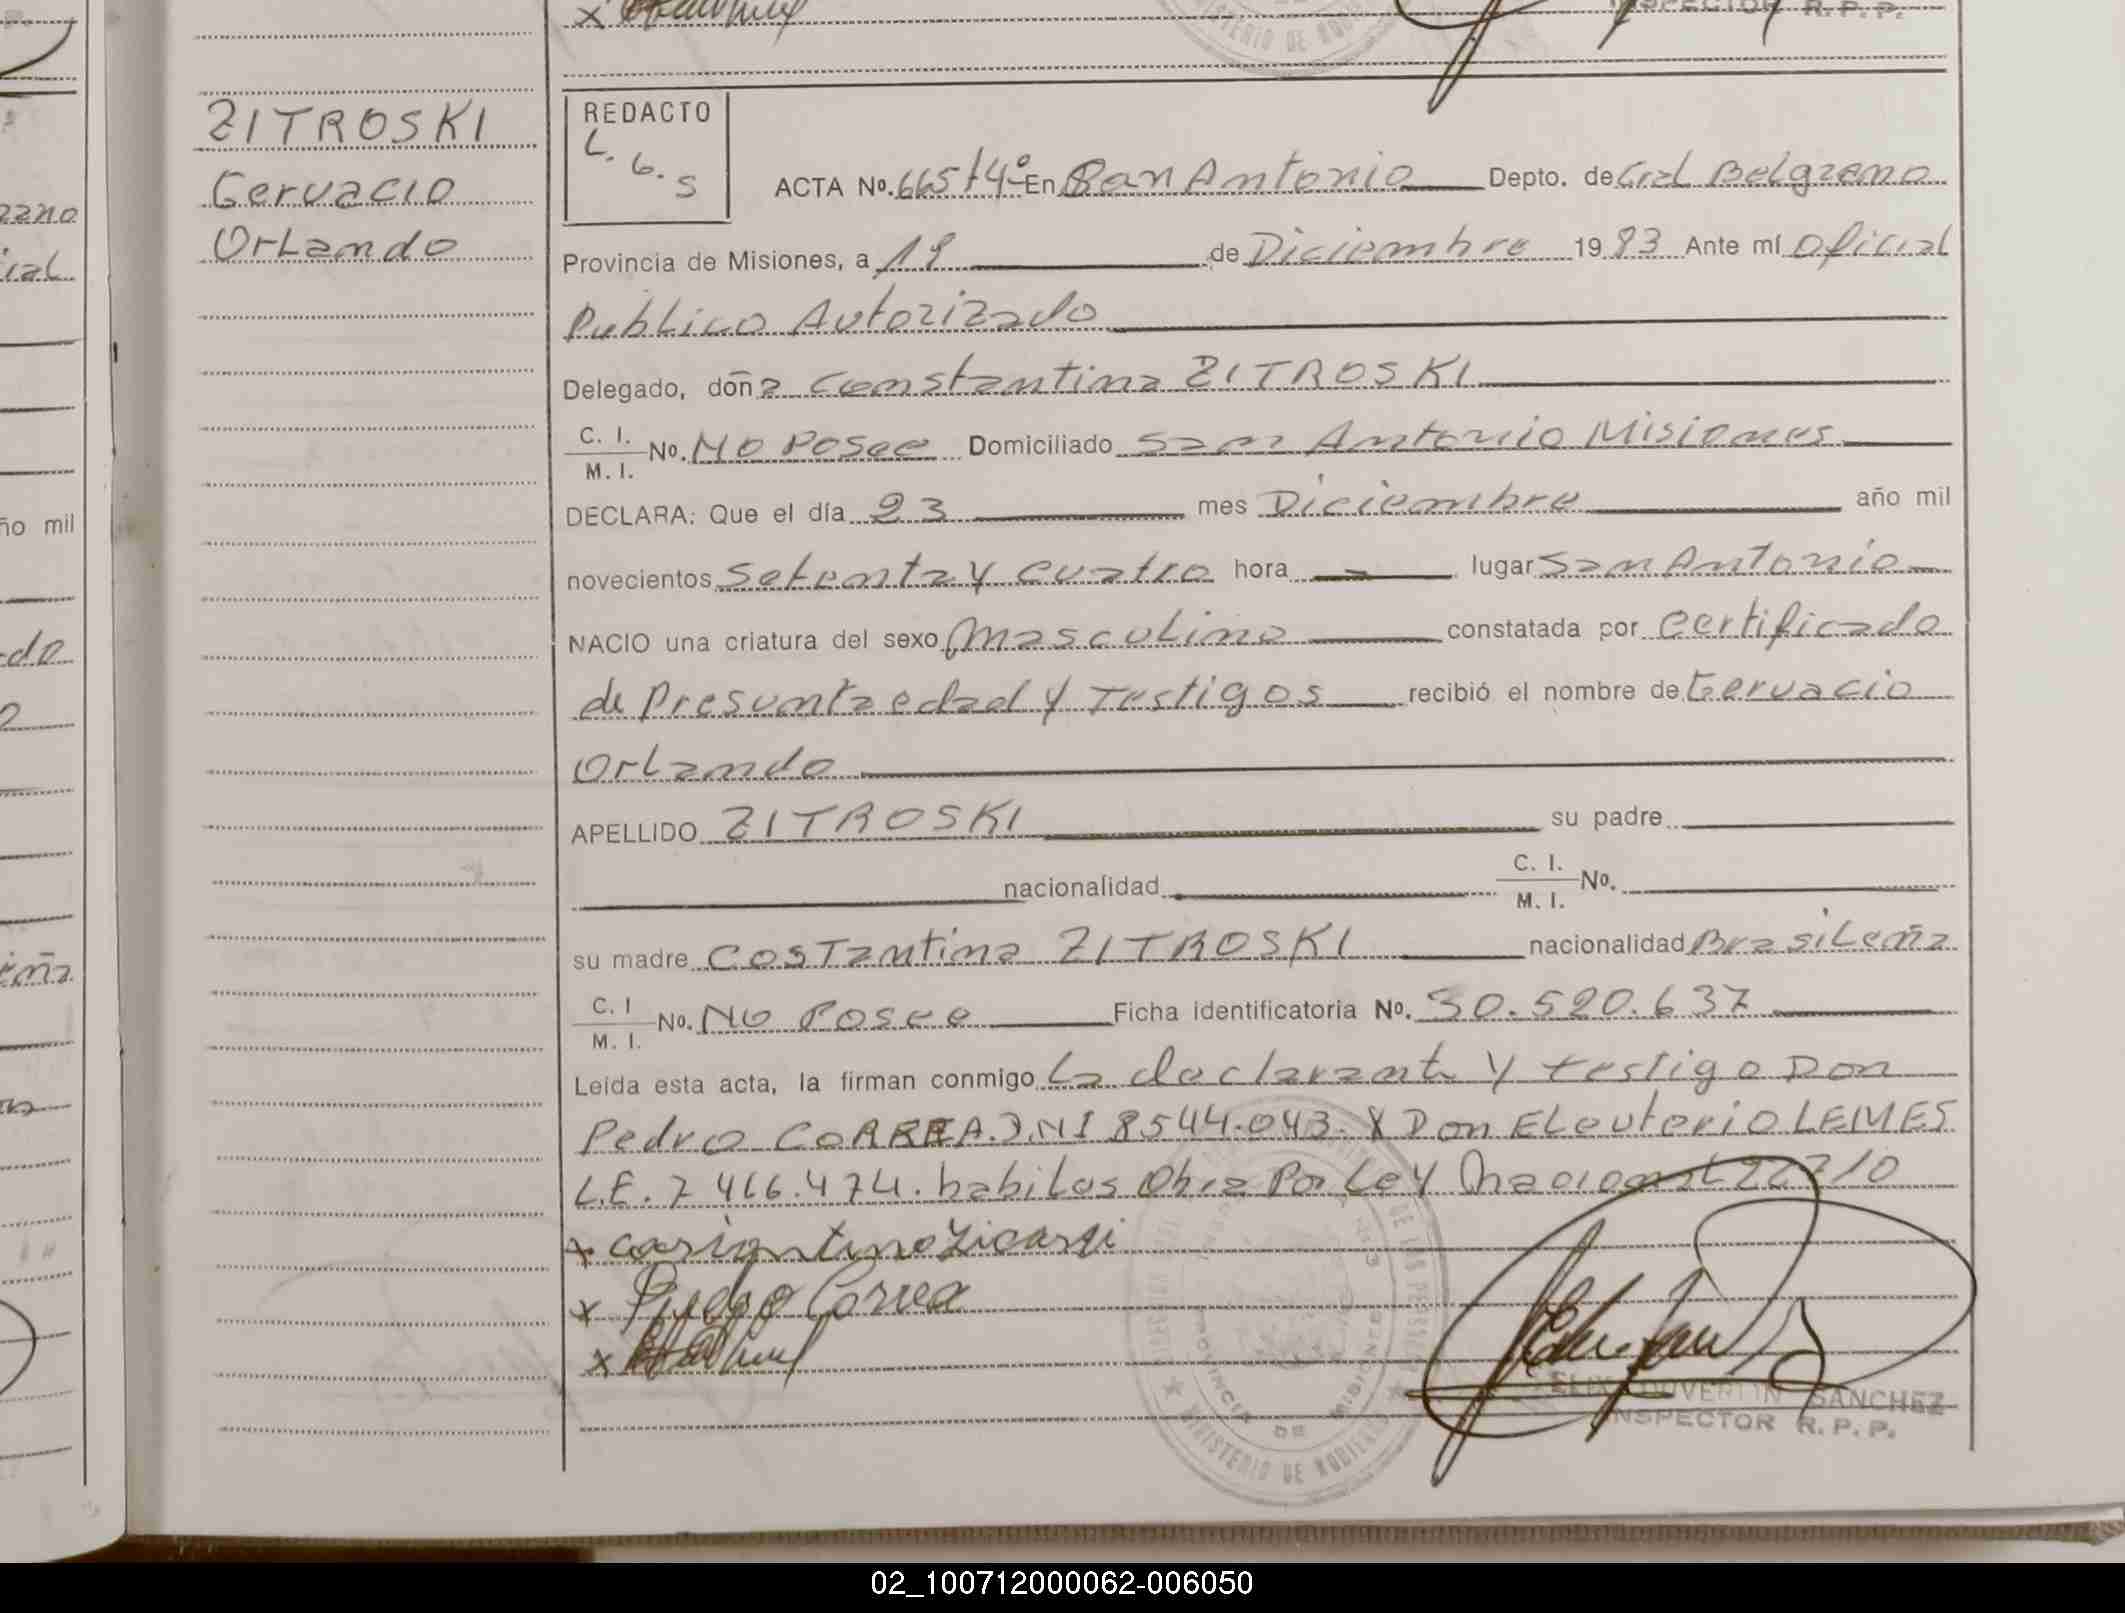 INSPECTOR R. P. P.
ZITROSKI
Gervacio
Orlando
REDACTO
L. G. S
ACTA No. 665 T4º En San Antonio Depto. de Gral Belgrano
Provincia de Misiones, a 19 de Diciembre 1983 Ante mí Oficial
Publico Autorizado
Delegado, doña Constantina ZITROSKI
C. I.
M. I. No. No Posee Domiciliado San Antonio Misiones
DECLARA: Que el día 23 mes Diciembre año mil
novecientos Setenta y cuatro hora — lugar San Antonio
NACIO una criatura del sexo Masculino constatada por Certificado
de Presunta edad y Testigos recibió el nombre de Gervacio
Orlando
APELLIDO ZITROSKI su padre
nacionalidad C. I.
M. I. No.
su madre Costantina ZITROSKI nacionalidad Brasileña
C. I
M. I. No. No Posee Ficha identificatoria No. 30.520.637
Leída esta acta, la firman conmigo La declarante y testigo Don
Pedro CORREA D.N.I 8544.043. Y Don Eleuterio LEMES
L.E. 7 466.474. habiles Obra Por Ley Nacional 22710
x
x Pedro Correa
x
FELIX DUVERLIN SANCHEZ
INSPECTOR R. P. P.
PROVINCIA DE MISIONES
MINISTERIO DE GOBIERNO
02_100712000062-006050